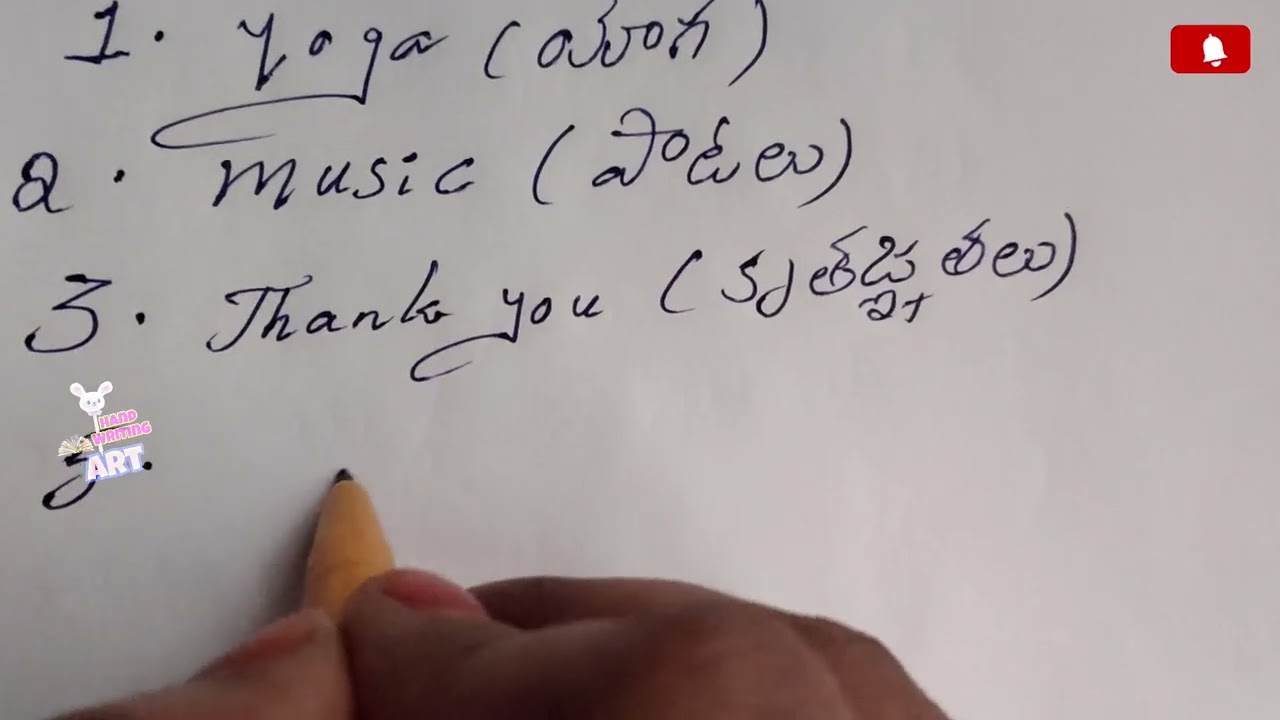 1. Yoga (యోగ)
2. Music (పాటలు)
3. Thank you (కృతజ్ఞతలు)
HAND
WRITING
ART